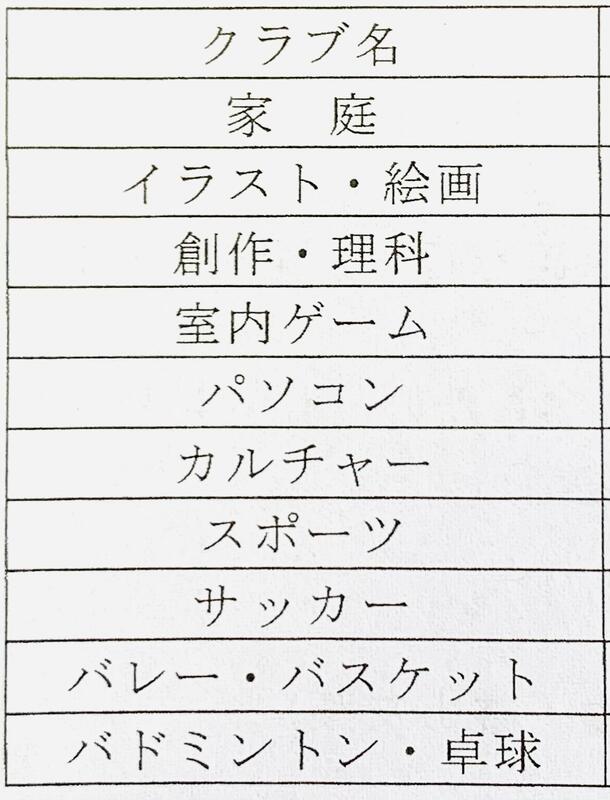 クラブ名
家　庭
イラスト・絵画
創作・理科
室内ゲーム
パソコン
カルチャー
スポーツ
サッカー
バレー・バスケット
バドミントン・卓球